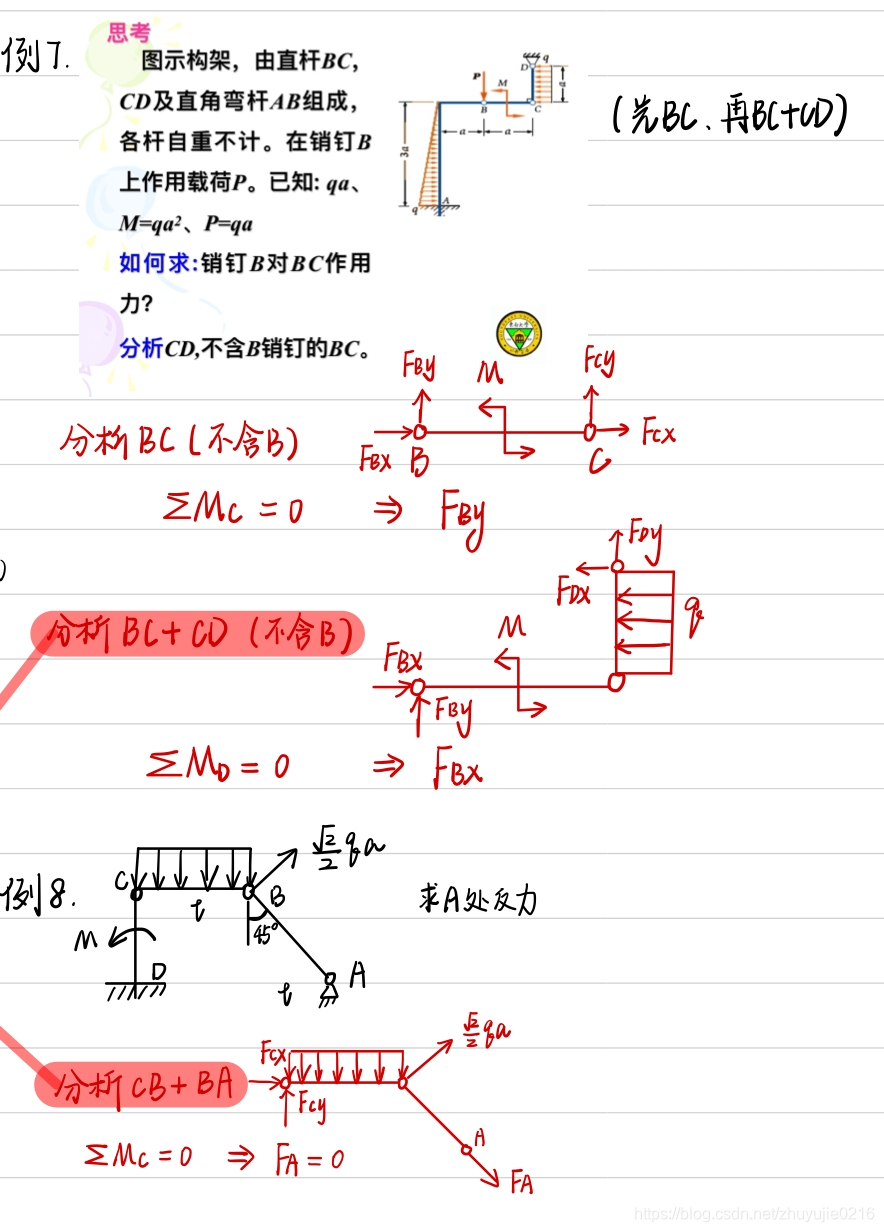 例7.
思考
图示构架，由直杆BC，
CD及直角弯杆AB组成，
各杆自重不计。在销钉B
上作用载荷P。已知: qa、
M=qa²、P=qa
如何求:销钉B对BC作用
力?
分析CD,不含B销钉的BC。
D q
P M a
B C
a a
3a
q A
(先BC、再BC+CD)
分析BC (不含B)
FBy M FCy
FBx B C FCx
ΣMC = 0 ⇒ FBy
)
分析BC+CD (不含B)
FDy
FDx q
M
FBx
FBy
ΣMD = 0 ⇒ FBx
例8.
√2/2 qa
C B
l
45°
M
D
l A
求A处反力
分析CB+BA
FCx
FCy
√2/2 qa
A
FA
ΣMC = 0 ⇒ FA = 0
https://blog.csdn.net/zhuyujie0216